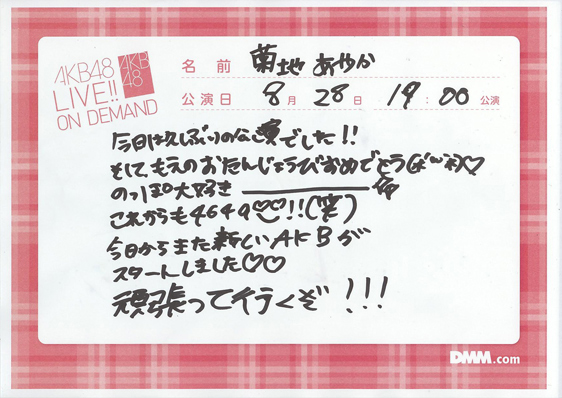 AKB48
LIVE!!
ON DEMAND
AKB
48
名前 菊地あやか
公演日 8月28日 19:00 公演
今日は久しぶりの公演でした!!
そしてもえのおたんじょうびおめでとう(よ~ね)♡
のっぽ大好き
これからも4649♡♡!!(笑)
今日からまた新しいAKBが
スタートしました♡♡
頑張って行くぞ!!!
DMM.com